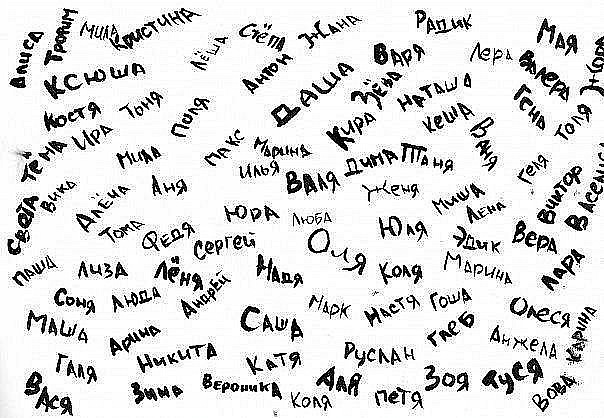 Алиса
Трофим
Мила
Кристина
Лёша
Стёпа
Жана
Радик
Варя
Лера
Мая
Валера
Жора
Ксюша
Антон
Даша
Зёва
Наташа
Гена
Толя
Костя
Тоня
Поля
Кира
Кеша
Ваня
Тёма
Ира
Мила
Макс
Марина
Илья
Валя
Дима
Таня
Геля
Виктор
Василиса
Света
Вика
Алёна
Аня
Женя
Миша
Лена
Тома
Федя
Юра
Люба
Юля
Эдик
Вера
Паша
Лиза
Лёня
Сергей
Оля
Надя
Коля
Марина
Лара
Соня
Люда
Андрей
Марк
Настя
Гоша
Олеся
Маша
Арина
Саша
Глеб
Анжела
Карина
Галя
Никита
Катя
Руслан
Вася
Зина
Вероника
Коля
Аля
Петя
Зоя
Туся
Вова